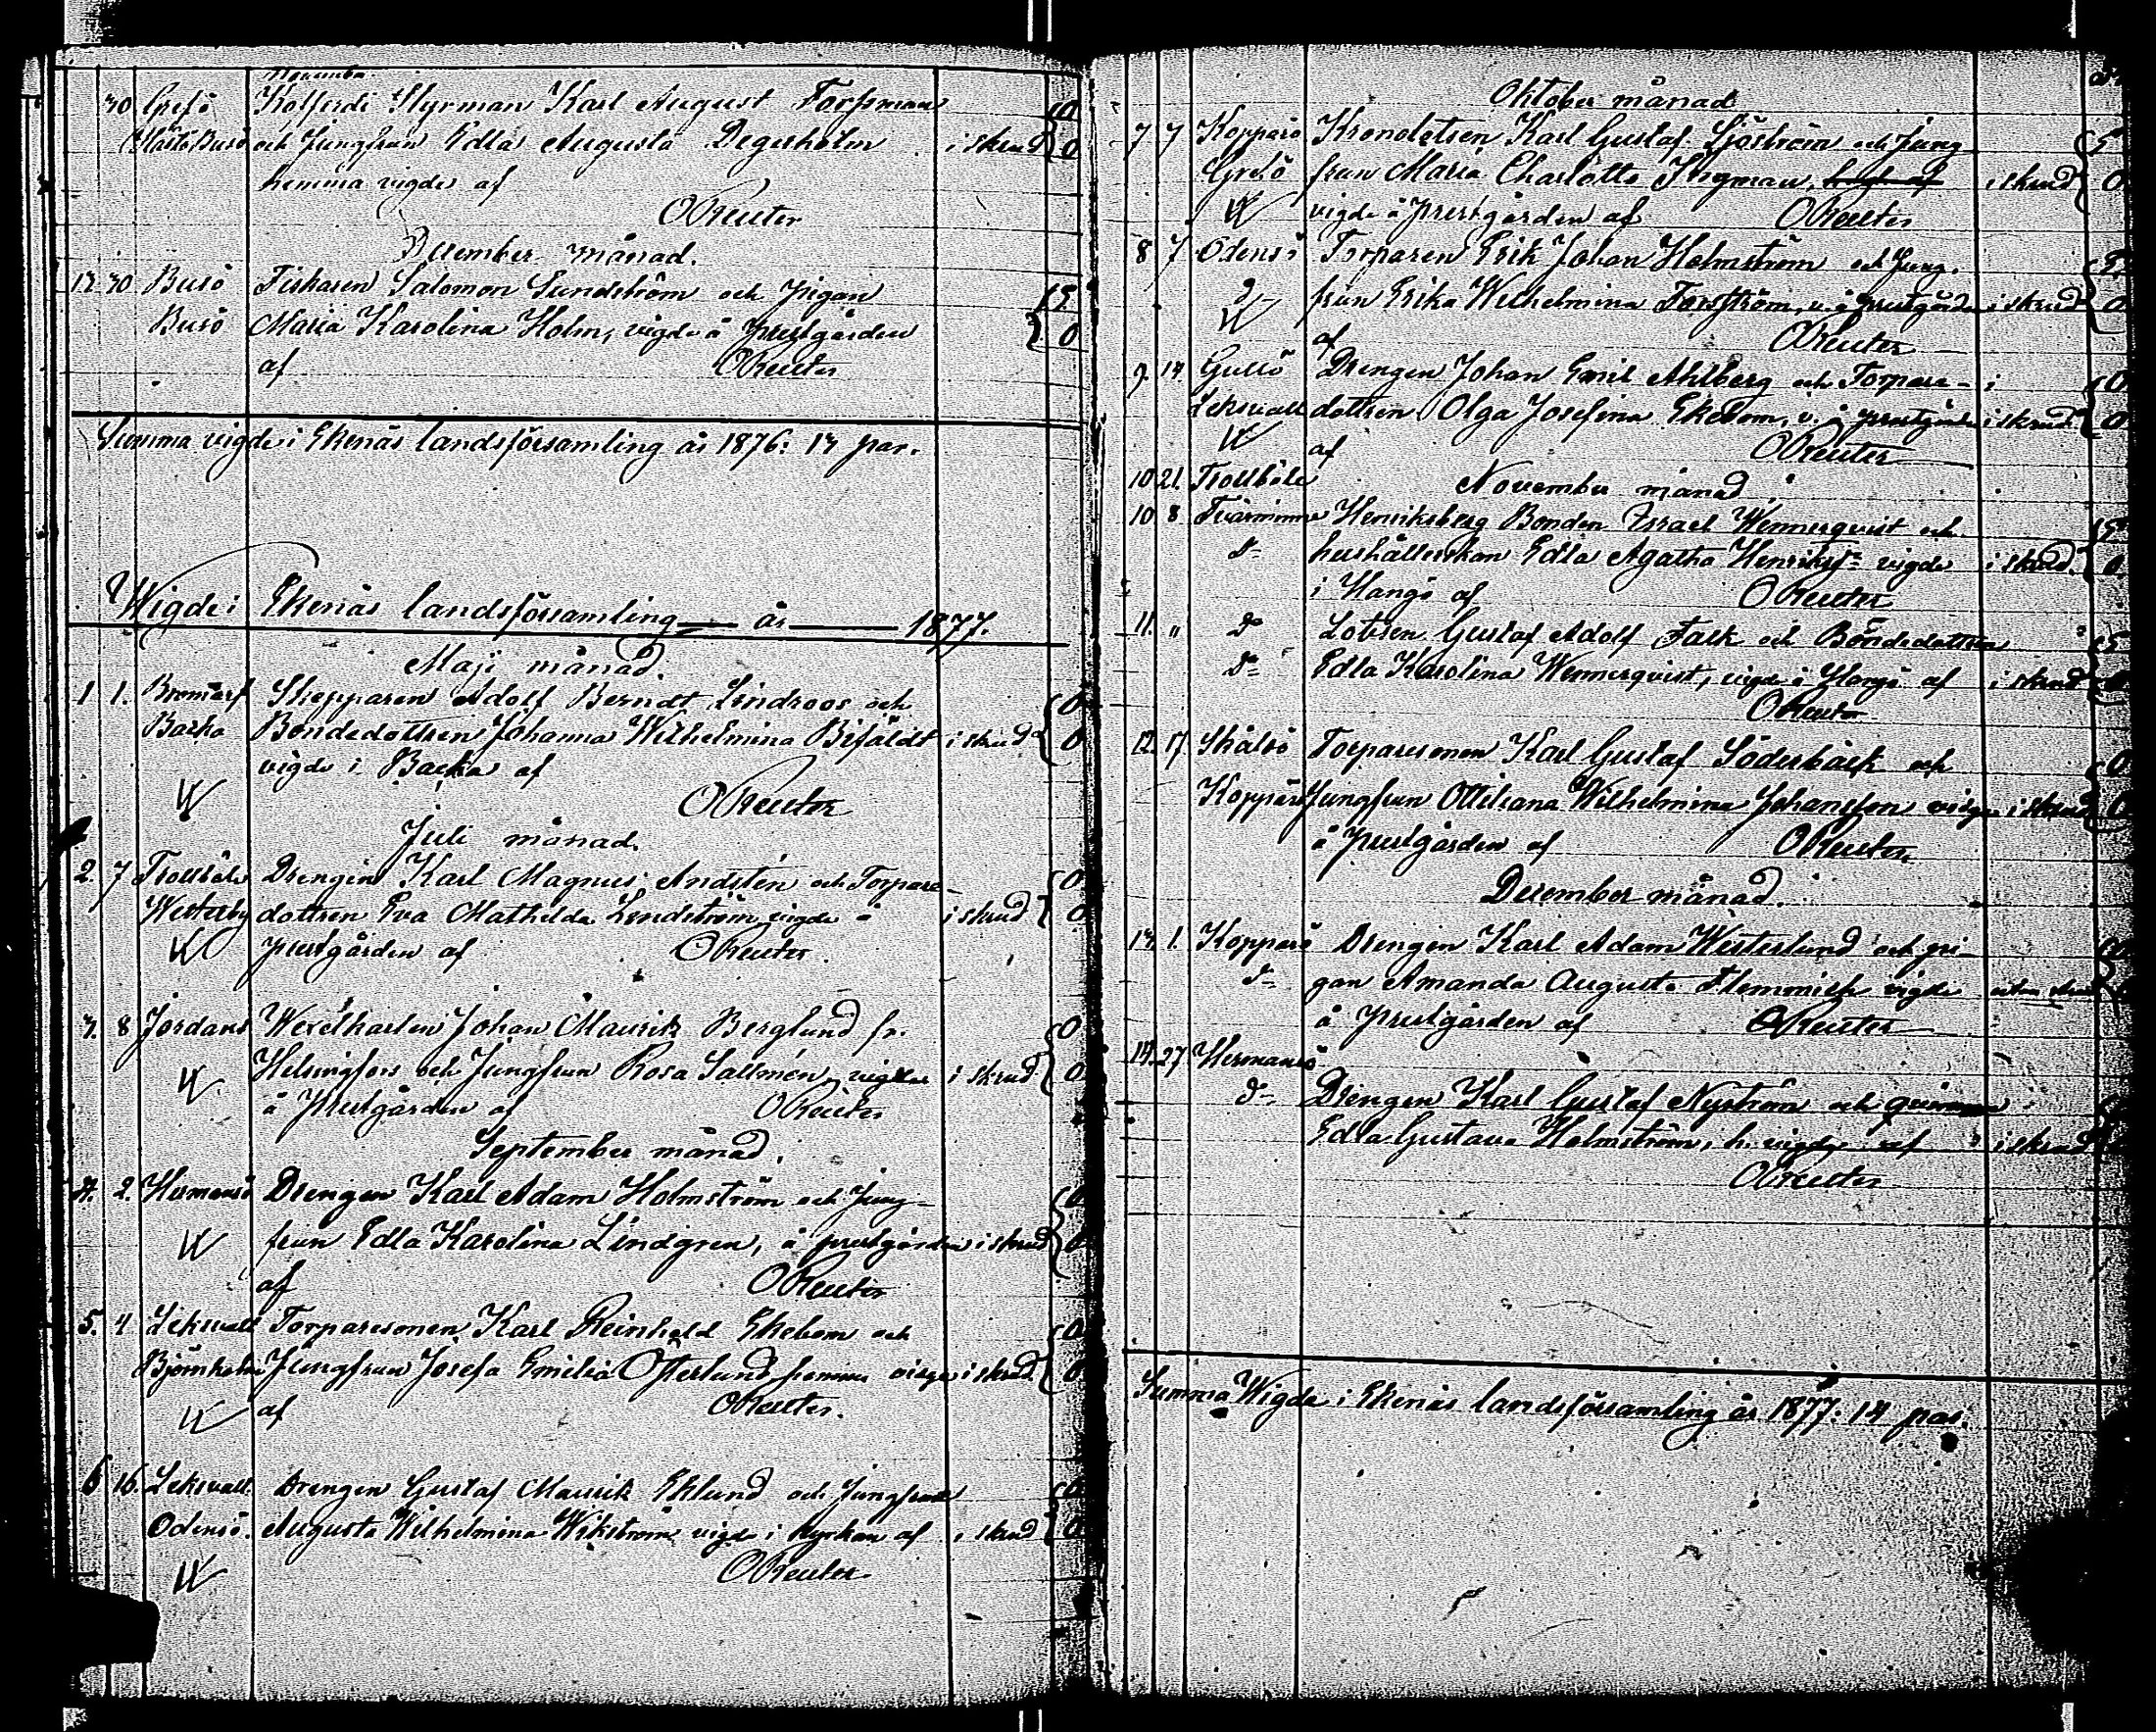 November
30 Grefö Kofferdi Styrman Karl August Forssman 0
Busö och Jungfrun Edla Augusta Degerholm i skrud 0
hemma vigde af
OReuter
December månad.
13 30 Busö Fiskaren Salomon Sundström och Pigan
Busö Maria Karolina Holm, vigde å prestgården 0
af OReuter
Summa vigde i Ekenäs landsförsamling år 1876: 13 par.
Wigde i Ekenäs landsförsamling år 1877.
Maji månad.
1 1. Bromarf Skepparen Adolf Berndt Lindroos och 0
Backa Bondedottren Johanna Wilhelmina Bifäldt i skrud 0
vigde i Backa af
OReuter
Juli månad.
2. 7 Trollböle Drengen Karl Magnus Andstén och Torpare- 0
Westerby dottren Eva Mathilda Lindström vigde å i skrud 0
prestgården af OReuter
3. 8 Jordans Wexelkarlen Johan Maurik Berglund fr. 0
Helsingfors och Jungfrun Rosa Sallmén, vigde i skrud 0
å prestgården af OReuter
September månad.
4. 2. Hermansö Drengen Karl Adam Holmström och Jung- 0
frun Edla Karolina Lindgren, å prestgården i skrud 0
af OReuter
5. 4 Leksvall Torparesonen Karl Reinhold Ekebom och 0
Björnholm Jungfrun Josefa Emilia Österlund hemma vigde i skrud 0
af OReuter.
6 16. Leksvall. Drengen Gustaf Maurik Eklund och Jungfrun 0
Odensö. Augusta Wilhelmina Wikström vigde i kyrkan af i skrud 0
OReuter
Oktober månad
7 7 Kopparö Krondotsen Karl Gustaf Sjöström och Jung
Grefö frun Maria Charlotta Ingman, i skrud 0
vigde å prestgården af OReuter
8 7 Odensö Torparen Erik Johan Holmström och Jung-
d- frun Erika Wilhelmina Forsström, v. å prestgården i skrud 0
af OReuter
9. 14 Gullö Drengen Johan Emil Ahlberg och Torpare- 0
Leksvall dottren Olga Josefina Ekebom, v. å prestgården i skrud 0
af OReuter
10 21. Trollböle November månad
10 8 Tvärminne Henriksberg Bonden Israel Wennerqvist och
D- hushållerskan Edla Agatha Henriksdr vigde i skrud. 0
i Hangö af OReuter
11. " Do Lotsen Gustaf Adolf Falk och Bondedottren
Do Edla Karolina Wennerqvist, vigde i Hangö af i skrud
OReuter
12. 17. Skåldö Torparesonen Karl Gustaf Söderbäck och 0
Kopparö Jungfrun Ottiliana Wilhelmina Johansson vigde i skrud 0
å prestgården af OReuter
December månad.
13. 1. Kopparö Drengen Karl Adam Westerlund och pi-
d- gan Amanda Augusta Flemmich vigde utan skrud
å prestgården af OReuter
14. 27 Hermansö
d- Drengen Karl Gustaf Nyström och qvinnan
Edla Gustava Holmström, h. vigde af i skrud
OReuter
Summa Wigde i Ekenäs landsförsamling år 1877: 14 par.